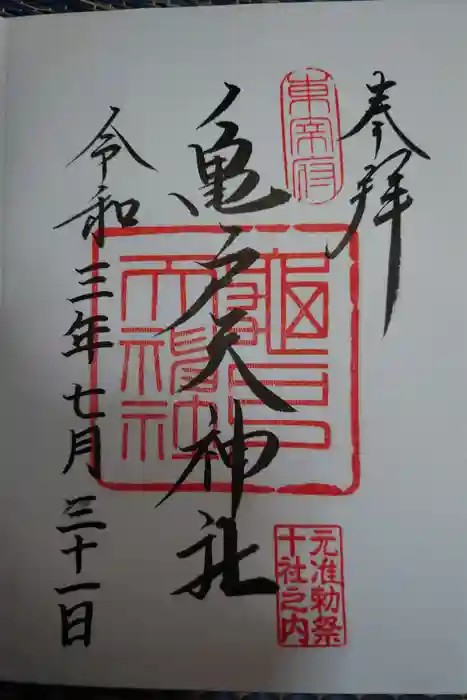 奉拝
東宰府
亀戸天神社
元准勅祭
十社之内
令和三年七月三十一日